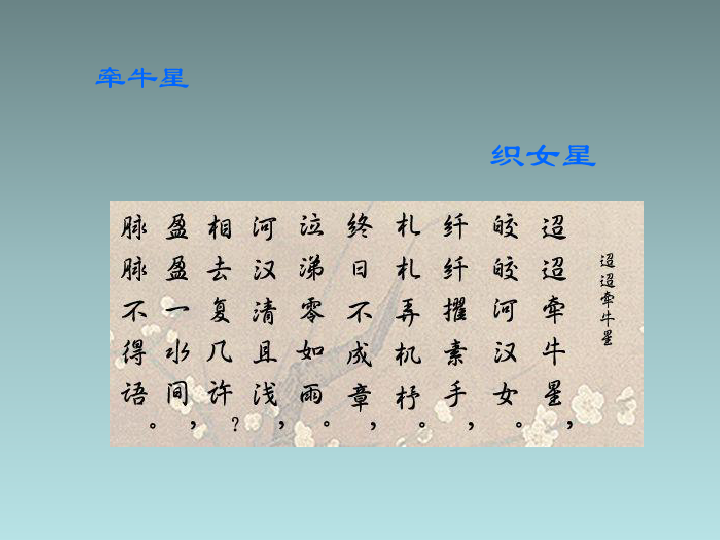 牵牛星
织女星
迢迢牵牛星
迢迢牵牛星，
皎皎河汉女。
纤纤擢素手，
札札弄机杼。
终日不成章，
泣涕零如雨。
河汉清且浅，
相去复几许？
盈盈一水间，
脉脉不得语。